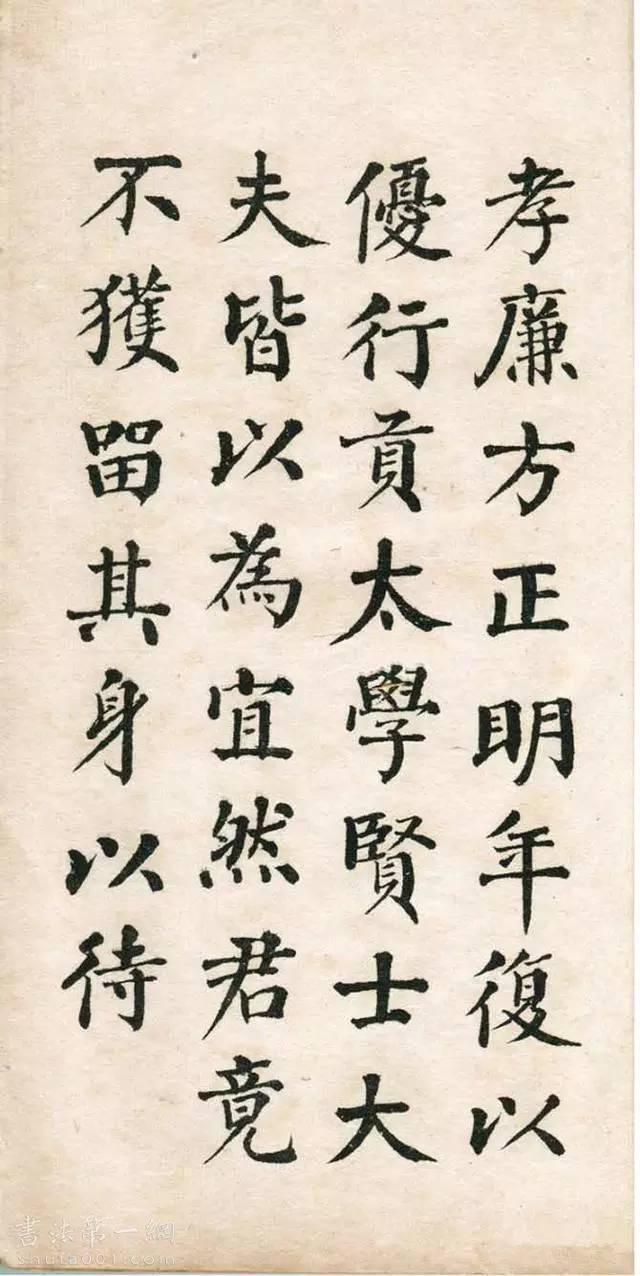 孝廉方正明年復以
優行貢太學賢士大
夫皆以為宜然君竟
不獲留其身以待
書法第一網
shufa001.com